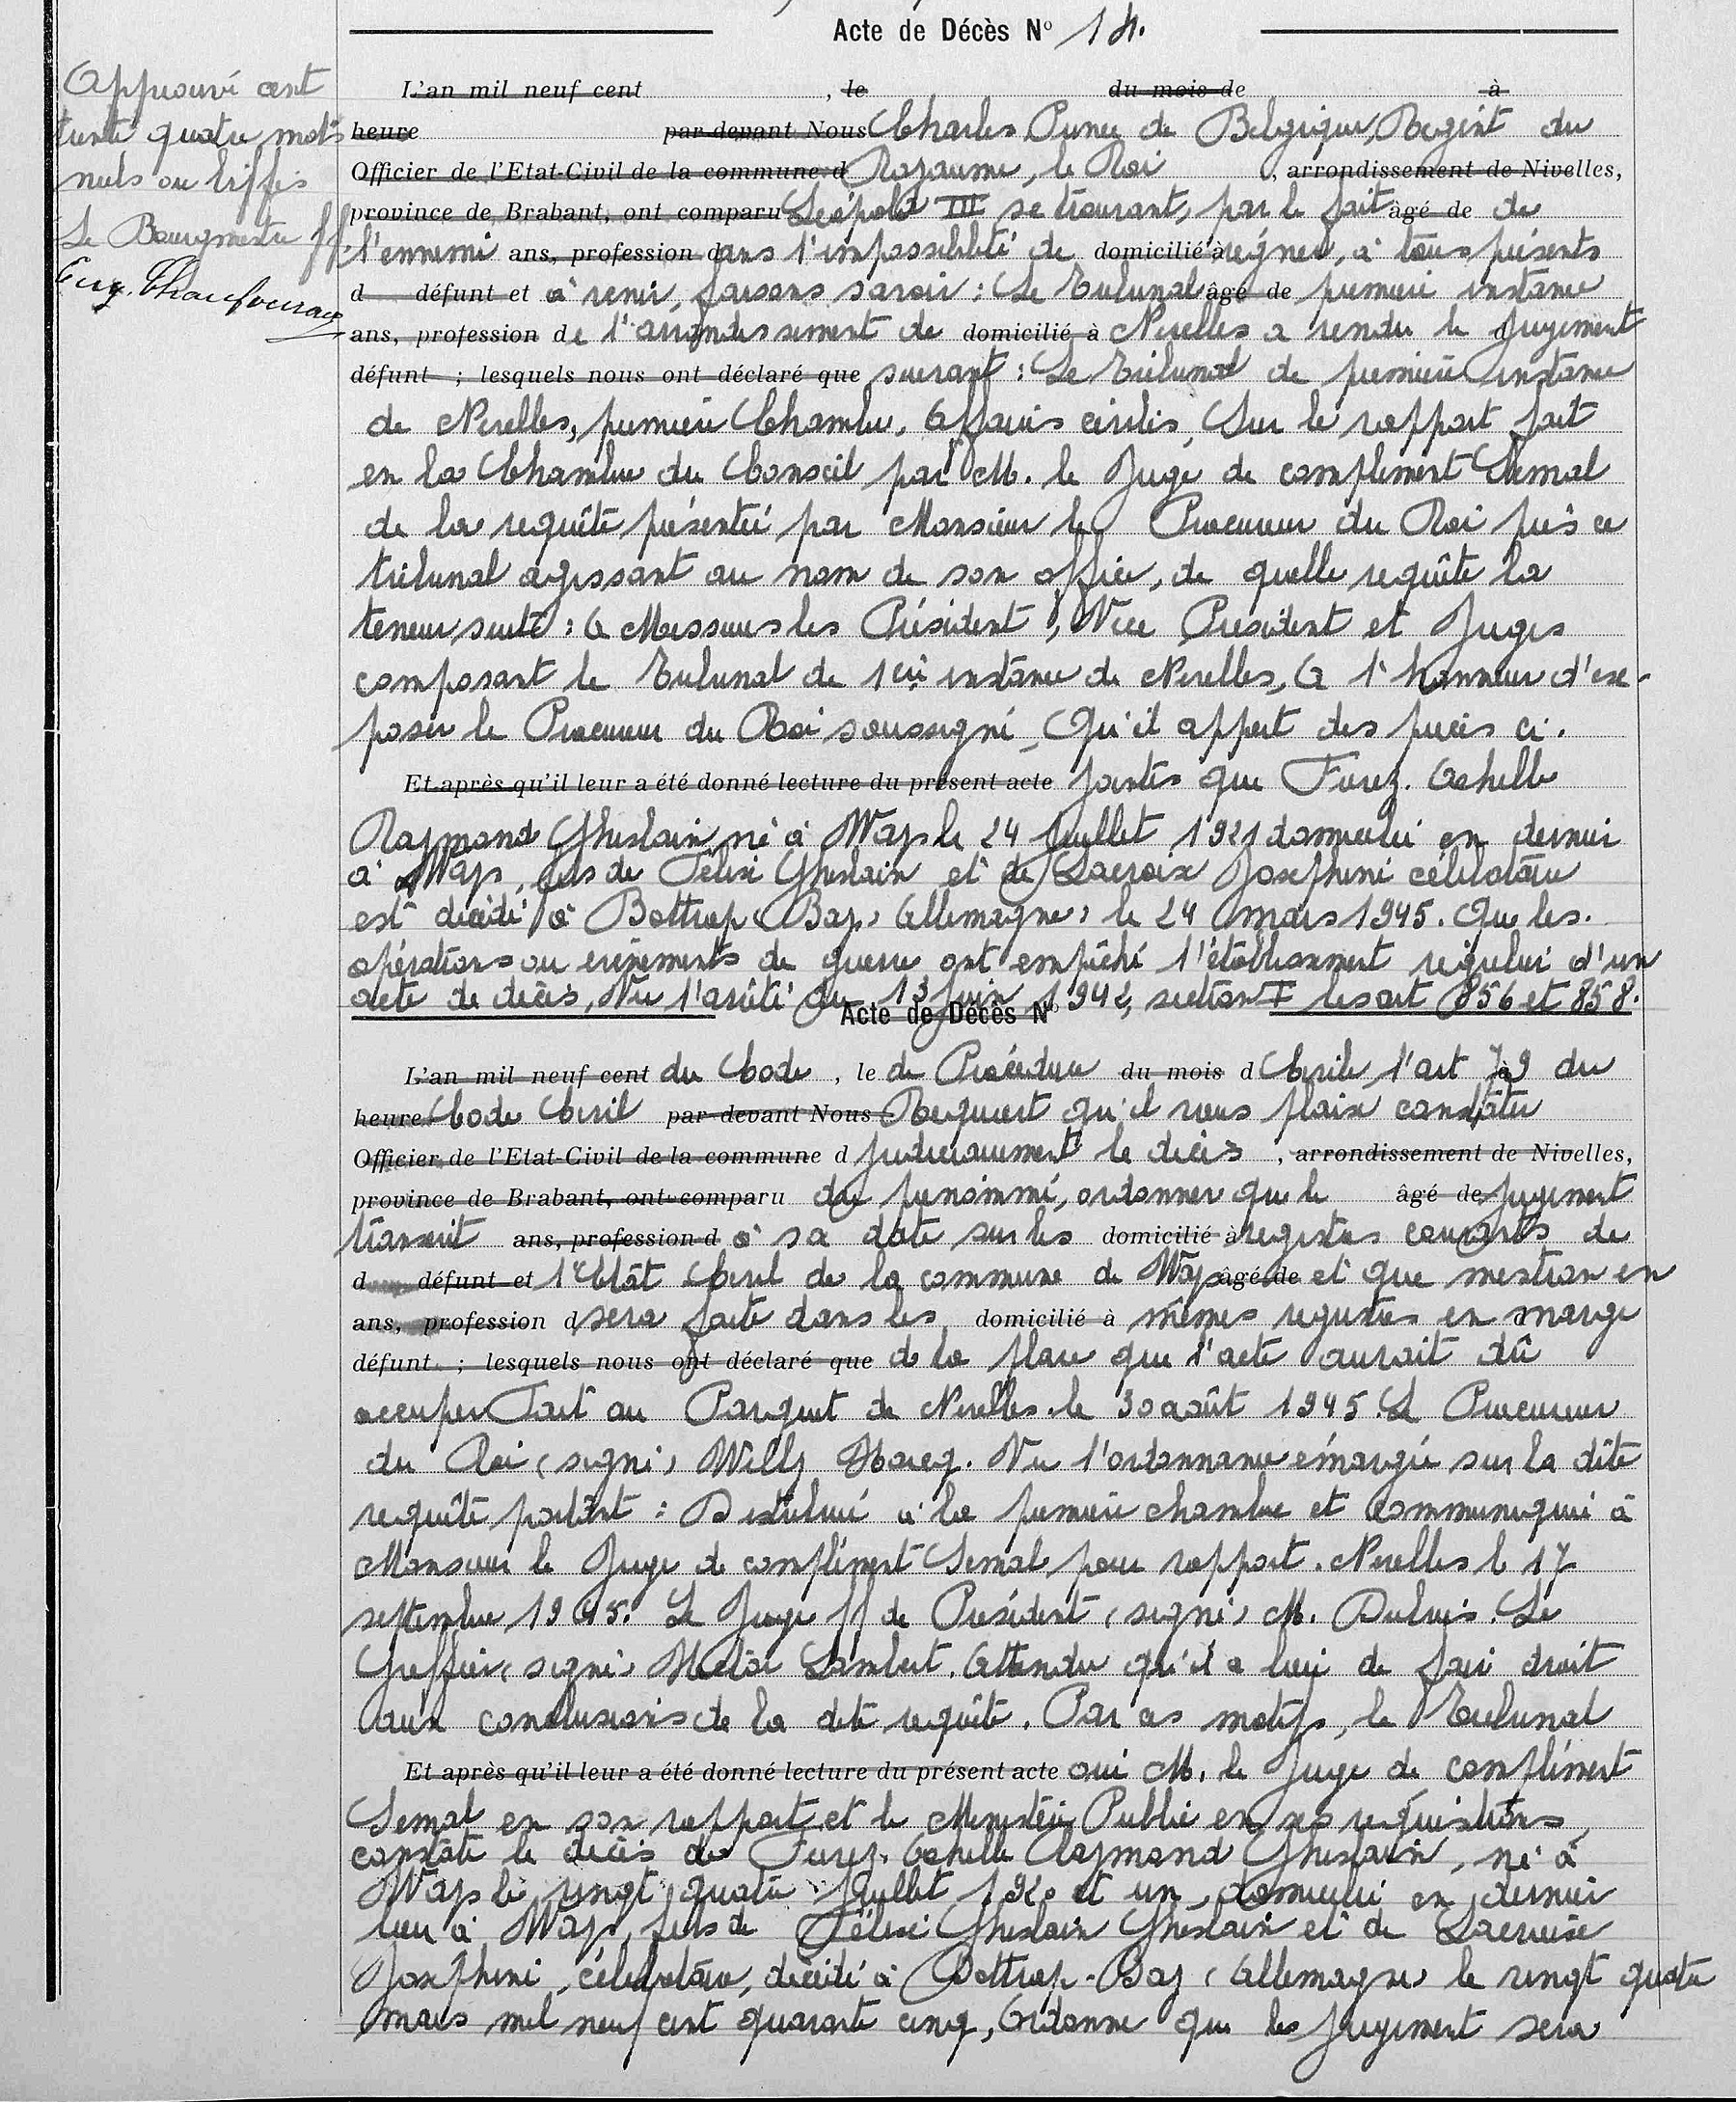 Acte de Décès N° 14.
Approuvé cent
trente quatre mots
nuls ou biffés
Le Bourgmestre ff.
L'an mil neuf cent , le du mois de à
heure par devant Nous Charles Prince de Belgique, Régent du
Officier de l'Etat-Civil de la commune d Royaume, le Roi , arrondissement de Nivelles,
province de Brabant, ont comparu Léopold III se trouvant, par le fait âgé de de
l'ennemi ans, profession dans l'impossibilité de domicilié à régner, à tous présents
d défunt et à venir, faisons savoir : Le Tribunal âgé de première instance
ans, profession de l'arrondissement de domicilié à Nivelles a rendu le jugement
défunt ; lesquels nous ont déclaré que suivant : Le Tribunal de première instance
de Nivelles, première Chambre, Affaires civiles, Sur le rapport fait
en la Chambre du Conseil par M. le Juge de complément Semal
de la requête présentée par Monsieur le Procureur du Roi près ce
tribunal agissant au nom de son office, de quelle requête la
teneur suite : A Messieurs les Président, Vice Président et Juges
composant le Tribunal de 1ère instance de Nivelles, A l'honneur d'ex-
poser le Procureur du Roi soussigné, Qu'il appert des pièces ci.
Et après qu'il leur a été donné lecture du présent acte jointes que Furez. Achille
Raymond Ghislain né à Ways le 24 Juillet 1921 domicilié en dernier
à Ways, fils de Félix Ghislain et de Lacroix Joséphine célibataire
est décédé à Bottrop (Boy, Allemagne) le 24 mars 1945. Que les.
opérations ou évènements de guerre ont empêché l'établissement régulier d'un
acte de décès, Vu l'arrêté du 13 Juin 1942, section I les art 856 et 858.
Acte de Décès N°
L'an mil neuf cent du Code , le de Procédure du mois d Civile l'art 79 du
heure Code Civil par devant Nous Requiert qu'il vous plaise constater
Officier de l'Etat-Civil de la commune d judiciairement le décès , arrondissement de Nivelles,
province de Brabant, ont comparu du prénommé, ordonner que le âgé de jugement
transcrit ans, profession d à sa date sur les domicilié à registres courants de
d défunt et l'Etat Civil de la commune de Ways âgé de et que mention en
ans, profession d sera faite dans les domicilié à mêmes registres en marge
défunt ; lesquels nous ont déclaré que de la place que l'acte aurait dû
occuper Fait au Parquet de Nivelles. le 30 août 1945. Le Procureur
du Roi (signé) Willy Hocq. Vu l'ordonnance émargée sur la dite
requête portant : Distribué à la première chambre et communiqué à
Monsieur le Juge de complément Semal pour rapport. Nivelles le 17
septembre 1945. Le Juge ff de Président (signé) M. Dubuis. Le
Greffier (signé) Hector Lambert. Attendu qu'il a lieu de faire droit
aux conclusions de la dite requête. Par ces motifs, le Tribunal
Et après qu'il leur a été donné lecture du présent acte oui M. le Juge de complément
Semal en son rapport et le Ministère Public en ses réquisitions
constate le décès de Furez. Achille Raymond Ghislain, né à
Ways le vingt quatre Juillet 1920 et un, domicilié en dernier
lieu à Ways, fils de Félix Ghislain Ghislain et de Lacroix
Joséphine, célibataire, décédé à Bottrop-Boy (Allemagne) le vingt quatre
mars mil neuf cent quarante cinq, Ordonne que les jugement sera